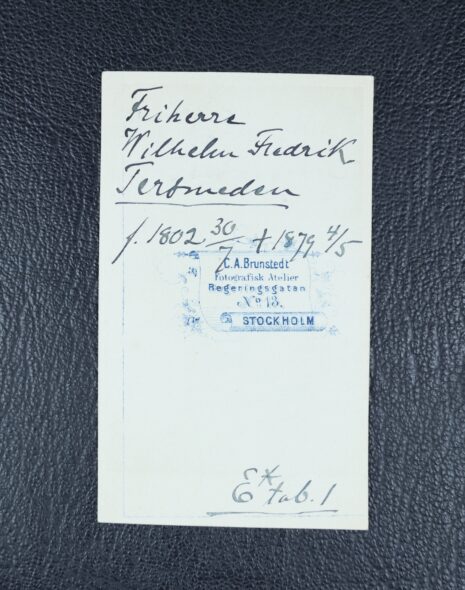 Friherre
Wilhelm Fredrik
Tersmeden
f. 1802 30/7 † 1879 4/5
C.A. Brunstedt
Fotografisk Atelier
Regeringsgatan
No 13.
STOCKHOLM
E* tab. 1